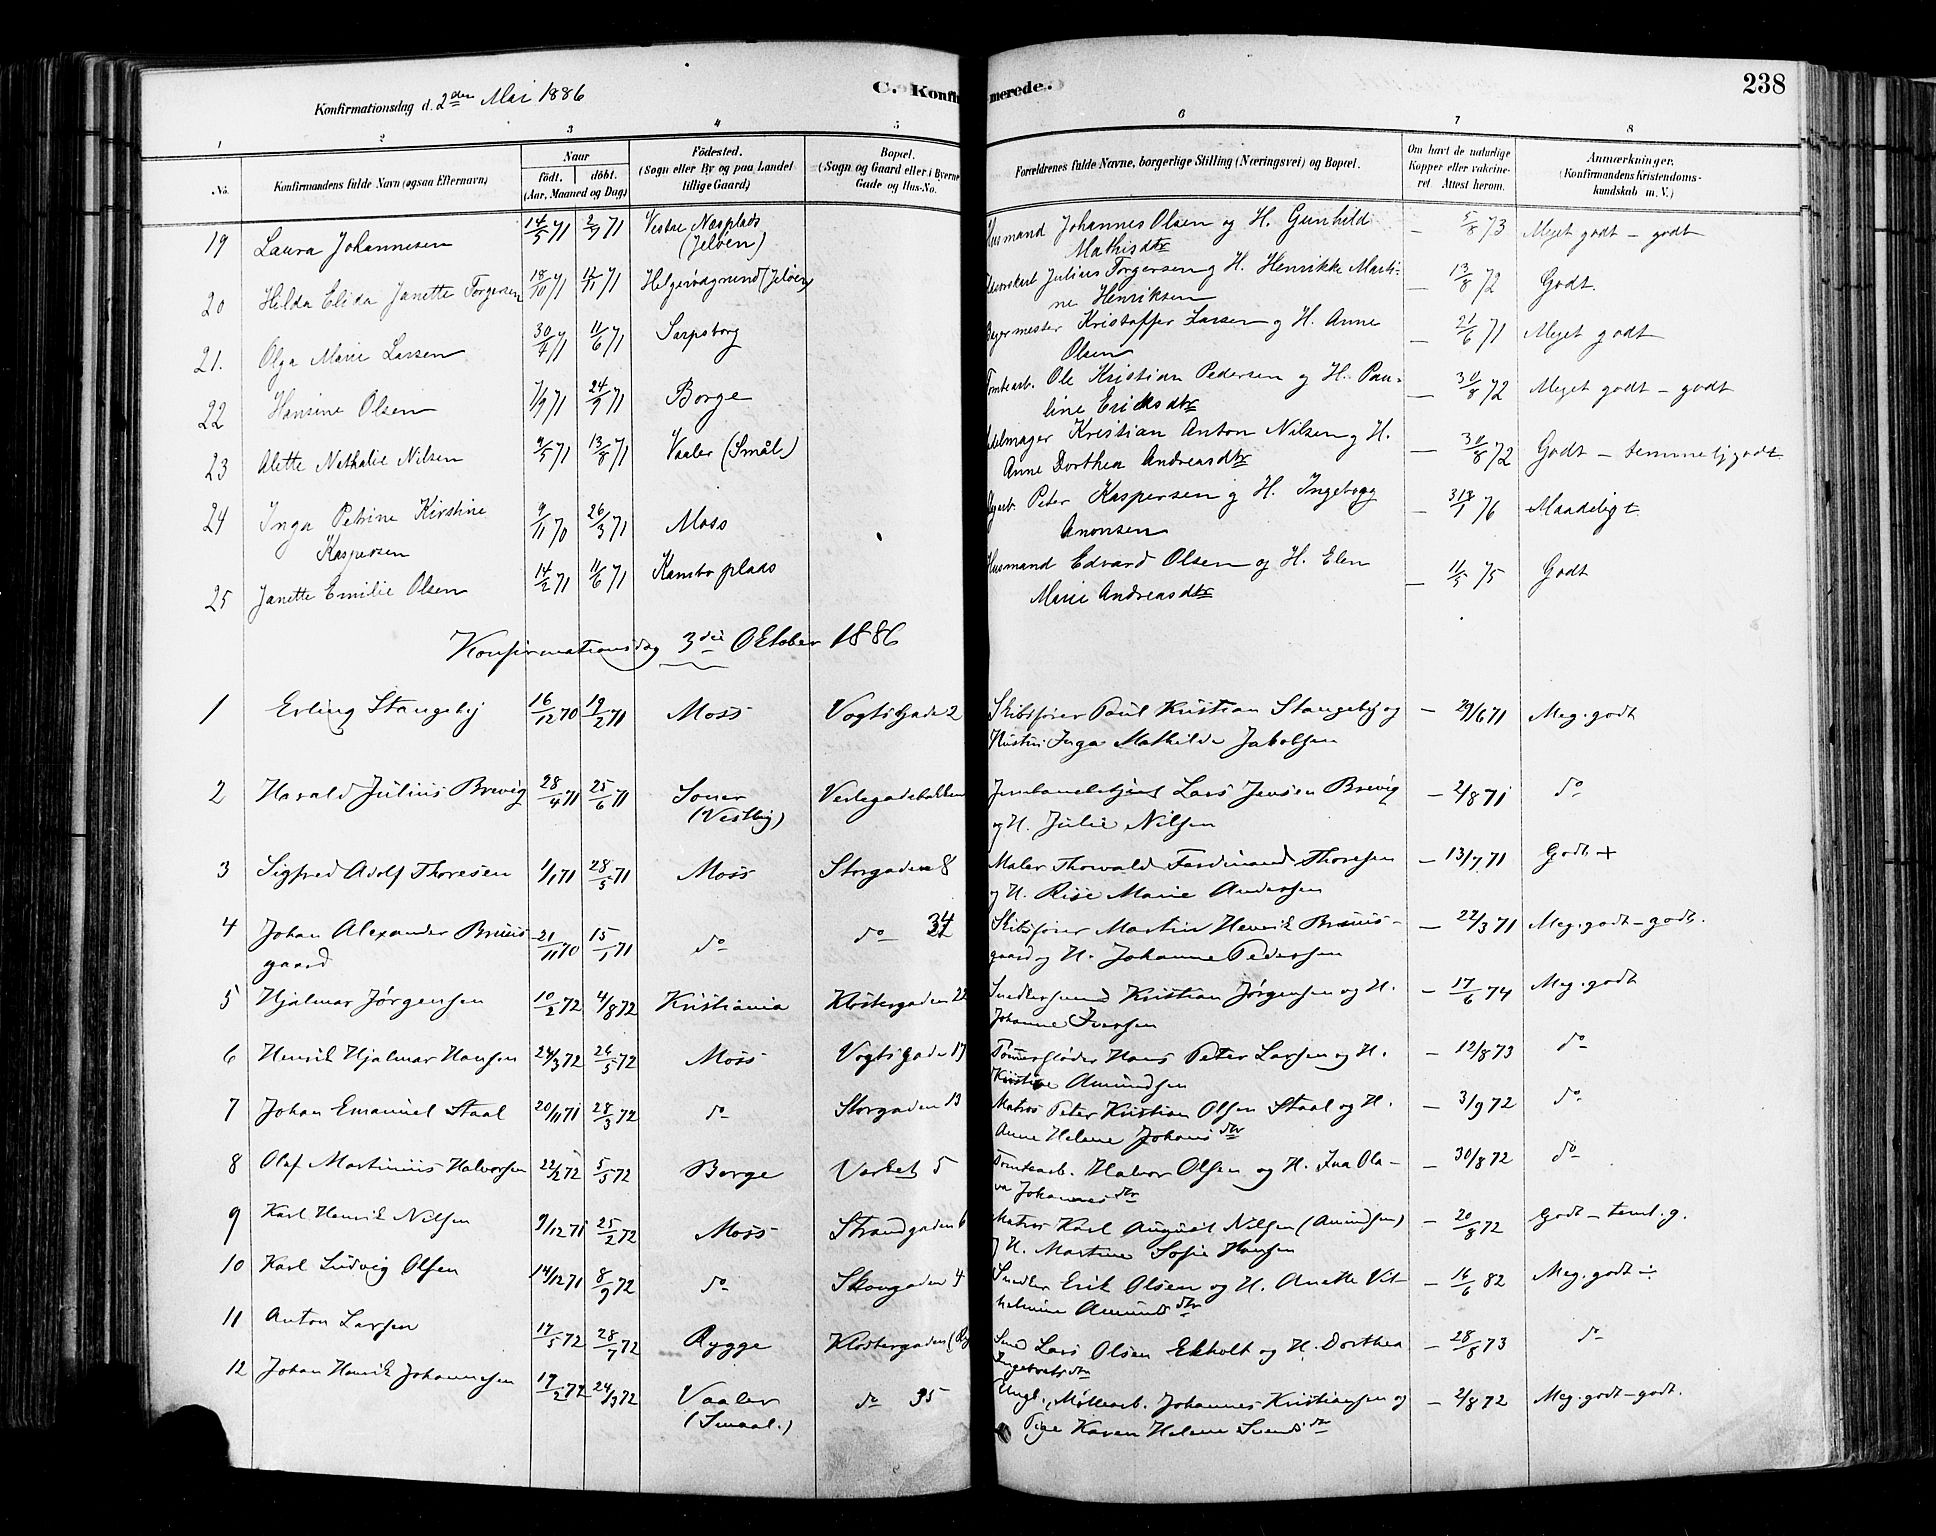 Konfirmationsdag d. 2den Mai 1886
C. Konfirmerede.
238
1 2 3 4 5 6 7 8
No.
Konfirmandens fulde Navn (ogsaa Efternavn)
Naar
födt. döbt.
(Aar, Maaned og Dag)
Födested.
(Sogn eller By og paa Landet
tillige Gaard)
Bopæl.
(Sogn og Gaard eller i Byerne
Gade og Hus-No.
Forældrenes fulde Navne, borgerlige Stilling (Næringsvei) og Bopæl.
Om havt de naturlige
Kopper eller vakcine-
ret Attest herom.
Anmærkninger.
(Konfirmandens Kristendoms-
kundskab m. V.)
19 Laura Johannesen 14/5 71 2/7 71 Vestre Næsplads Husmand Johannes Olsen og H. Gunhild — 5/8 73 Meget godt – godt
(Jeløen) Mathisdtr
20 Hilda Elida Janette Torgersen 18/10 71 Helgerødgrund (Jeløen) Julius Torgersen og H. Henrikke Marti- — 13/8 72 Godt.
ne Henriksen
21. Olga Marie Larsen 30/4 71 11/6 71 Sarpsborg Kristoffer Larsen og H. Anne — 21/6 71 Meget godt
Olsen
22 Hansine Olsen 7/9 71 24/9 71 Borge Tomtearb. Ole Kristian Pedersen og H. Pau- — 30/8 72 Meget godt – godt
line Ericksdtr
23 Alette Nathalie Nilsen 9/5 71 13/8 71 Vaaler (Smål.) Kristian Anton Nilsen og H. — 30/8 72 Godt – temmeligodt
Anne Dorthea Andreasdtr
24 Inga Petrine Kirstine 9/11 70 26/3 71 Moss Peter Kaspersen og H. Ingeborg — 76 Maadeligt
Kaspersen Anonsen
25 Janette Emilie Olsen 14/2 71 11/6 71 Kambo plads Husmand Edvard Olsen og H. Elen — 11/5 75 Godt
Marie Andreasdtr
Konfirmationsdag 3die Oktober 1886
1 Erling Stangeby 16/12 70 19/2 71 Moss Vogtsgade 2 Skibsfører Paul Kristian Stangeby og — 29/6 71 Meg. godt
Hustru Inga Mathilde Jakobsen
2 Harald Julius Brevig 28/4 71 25/6 71 Soner Verlegadebakken Jernbanebetjent Lars Jensen Brevig — 2/8 71 do
(Vestby) og H. Julie Nilsen
3 Sigfred Adolf Thoresen 1/1 71 28/5 71 Moss Storgaden 8 Maler Thorvald Ferdinand Thoresen — 13/7 71 Godt +
og H. Risе Marie Andersen
4 Johan Alexander Bruus- 21/11 70 15/1 71 do do 34 Skibsfører Martin Henrik Bruus- — 22/3 71 Meg. godt – godt.
gaard gaard og H. Johanne Pedersen
5 Hjalmar Jørgensen 10/2 72 4/8 72 Kristiania Klostergaden 22 Snedkersvend Kristian Jørgensen og H. — 17/6 74 Meg. godt
Johanne Iversen
6 Henrik Hjalmar Hansen 24/3 72 26/5 72 Moss Vogtsgade 17 Tømmerfløder Hans Peter Larsen og H. — 12/8 73 do
Kristine Amundsen
7 Johan Emanuel Staal 20/11 71 28/3 72 do Storgaden 13 Matros Peter Kristian Olsen Staal og H. — 3/9 72 do
Anne Helene Johansdtr
8 Olaf Martinius Halvorsen 22/2 72 5/5 72 Borge Verket 5 Tomtearb. Halvor Olsen og H. Ina Ola- — 30/8 72 do
va Johannesdtr
9 Karl Henrik Nilsen 9/12 71 25/2 72 Moss Strandgaden 6 Matros Karl August Nilsen (Amundsen) — 20/8 72 Godt – teml. g.
og H. Martine Sofie Hansen
10 Karl Ludvig Olsen 14/12 71 8/9 72 do Skovgaden 4 Snedker Erik Olsen og H. Anette Vil- — 16/6 82 Meg. godt ÷
helmine Amundsdtr
11 Anton Larsen 17/5 72 28/7 72 Rygge Klostergaden Lars Olsen Ekholt og H. Dorthea — 28/8 73 do
Ingebretsdtr
12 Johan Henrik Johannesen 19/2 72 24/3 72 Vaaler do 35 Ungk., Møllearb. Johannes Kristiansen og — 2/8 72 Meg. godt – godt.
(Smaal.) Pige Karen Helene Svendsdtr